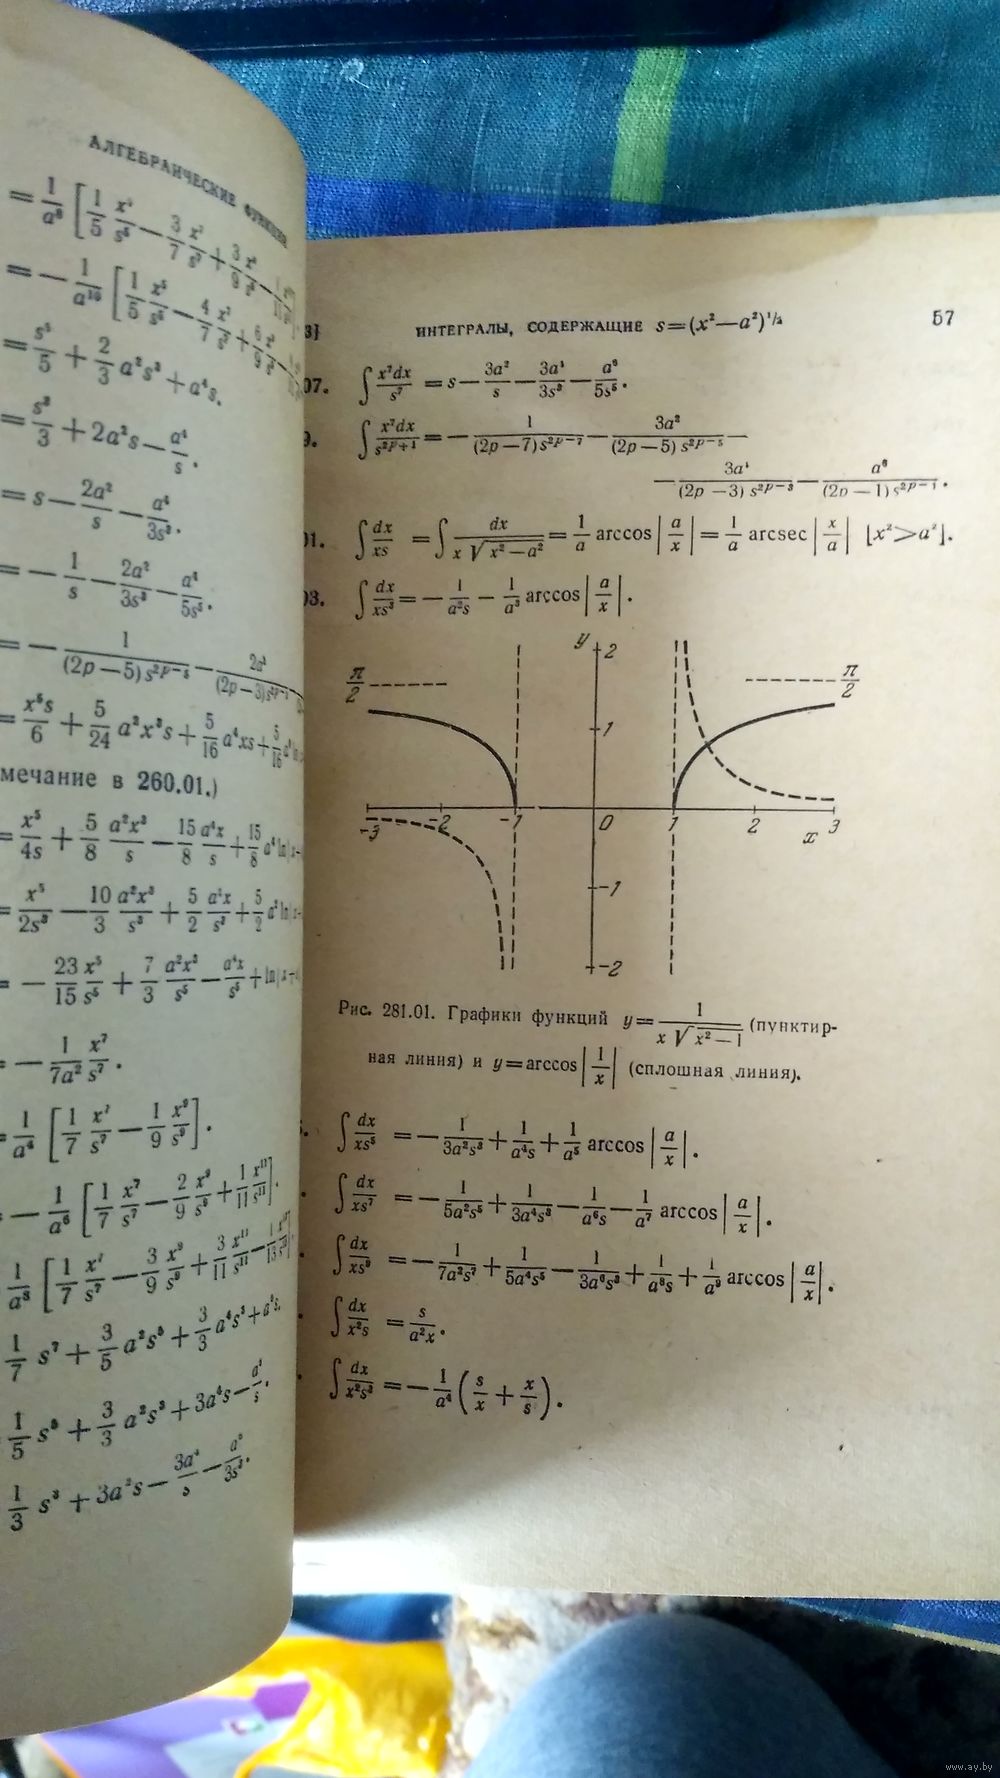 АЛГЕБРАИЧЕСКИЕ ФУНКЦИИ
= 1/a⁸ [1/5 x⁵/s⁵ − 3/7 x⁷/s⁷ + 3/9 x⁹/s⁹ −
= − 1/a¹⁰ [1/5 x⁵/s⁵ − 4/7 x⁷/s⁷ + 6/9 x⁹/s⁹ −
= s⁵/5 + 2/3 a²s³ + a⁴s.
= s³/3 + 2a²s − a⁴/s.
= s − 2a²/s − a⁴/3s³.
= − 1/s − 2a²/3s³ − a⁴/5s⁵.
= − 1/(2p−5) s²ᵖ⁻⁵ − 2a²/(2p−3) s²ᵖ⁻³
= x⁵s/6 + 5/24 a²x³s + 5/16 a⁴xs + 5/16
мечание в 260.01.)
= x⁵/4s + 5/8 a²x³/s − 15/8 a⁴x/s + 15/8 a⁴ ln
= x⁵/2s³ − 10/3 a²x³/s³ + 5/2 a⁴x/s³ + 5/2 a² ln
= − 23/15 x⁵/s⁵ + 7/3 a²x³/s⁵ − a⁴x/s⁵ + ln
− 1/7a² x⁷/s⁷.
= 1/a⁴ [1/7 x⁷/s⁷ − 1/9 x⁹/s⁹].
− 1/a⁶ [1/7 x⁷/s⁷ − 2/9 x⁹/s⁹ + 1/11 x¹¹/s¹¹].
1/a⁸ [1/7 x⁷/s⁷ − 3/9 x⁹/s⁹ + 3/11 x¹¹/s¹¹ − 1/13 x¹³/s¹³]
1/7 s⁷ + 3/5 a²s⁵ + 3/3 a⁴s³ + a⁶s.
1/5 s⁵ + 3/3 a²s³ + 3a⁴s − a⁶/s.
1/3 s³ + 3a²s − 3a⁴/s − a⁶/3s³.
3] ИНТЕГРАЛЫ, СОДЕРЖАЩИЕ s=(x²−a²)^½ 57
07. ∫ x⁷dx/s⁷ = s − 3a²/s − 3a⁴/3s³ − a⁶/5s⁵.
9. ∫ x⁷dx/s²ᵖ⁺¹ = − 1/(2p−7) s²ᵖ⁻⁷ − 3a²/(2p−5) s²ᵖ⁻⁵ −
− 3a⁴/(2p−3) s²ᵖ⁻³ − a⁶/(2p−1) s²ᵖ⁻¹.
01. ∫ dx/xs = ∫ dx/x√(x²−a²) = 1/a arccos |a/x| = 1/a arcsec |x/a| [x²>a²].
03. ∫ dx/xs³ = − 1/a²s − 1/a³ arccos |a/x|.
y 2
π/2 π/2
1
-3 -2 -1 0 1 2 3
x
-1
-2
Рис. 281.01. Графики функций y= 1/x√(x²−1) (пунктир-
ная линия) и y=arccos |1/x| (сплошная линия).
∫ dx/xs⁵ = − 1/3a²s³ + 1/a⁴s + 1/a⁵ arccos |a/x|.
∫ dx/xs⁷ = − 1/5a²s⁵ + 1/3a⁴s³ − 1/a⁶s − 1/a⁷ arccos |a/x|.
∫ dx/xs⁹ = − 1/7a²s⁷ + 1/5a⁴s⁵ − 1/3a⁶s³ + 1/a⁸s + 1/a⁹ arccos |a/x|.
∫ dx/x²s = s/a²x.
∫ dx/x²s³ = − 1/a⁴ (s/x + x/s).
www.ay.by